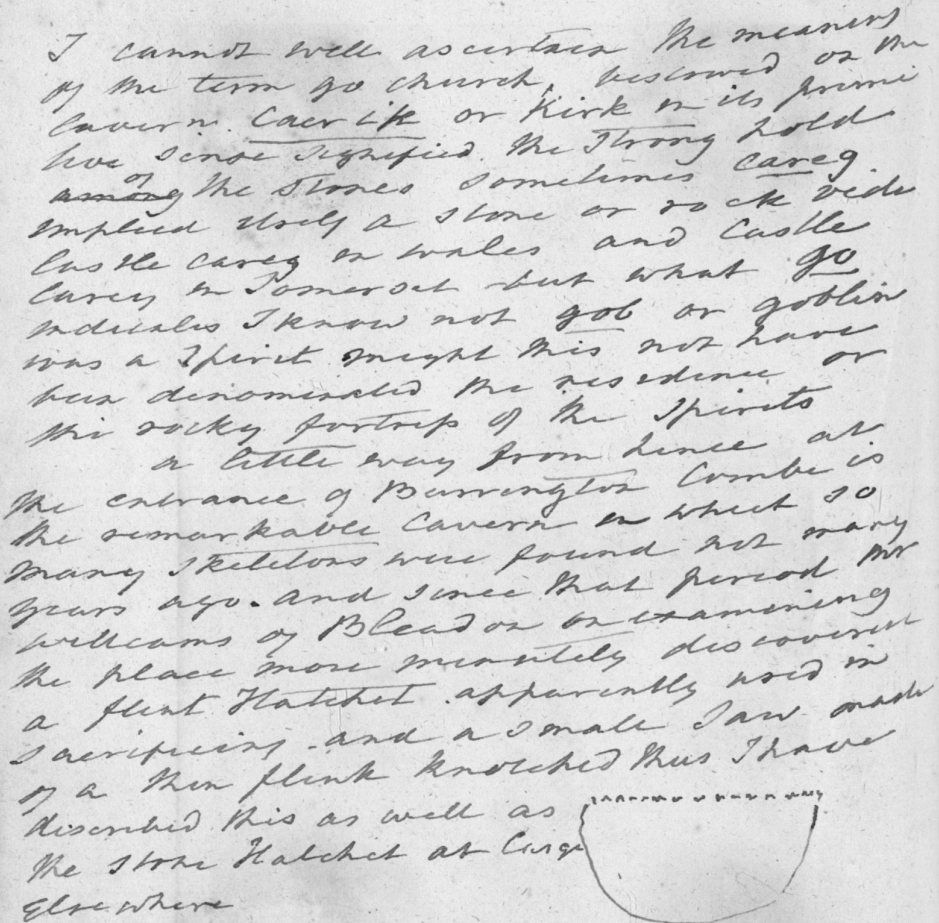 I cannot well ascertain the meaning
of the term go church, bestowed on the
Cavern. Caer ik or Kirk in its primi
tive sense signified the Strong hold
among of the Stones sometimes careg
implied itself a stone or rock vide
Castle careg in wales and Castle
Carey in Somerset but what go
indicates I know not gob or goblin
was a Spirit might this not have
been denominated the residence or
the rocky fortress of the Spirits
a little way from hence at
the entrance of Burrington Combe is
the remarkable Cavern in which so
many skeletons were found not many
years ago. and since that period Mr
williams of Bleadon on examining
the place more minutely discovered
a flint Hatchet apparently used in
sacrificing. and a small Saw made
of a thin flink knotched thus I have
described this as well as
the stone Hatchet at
Elsewhere